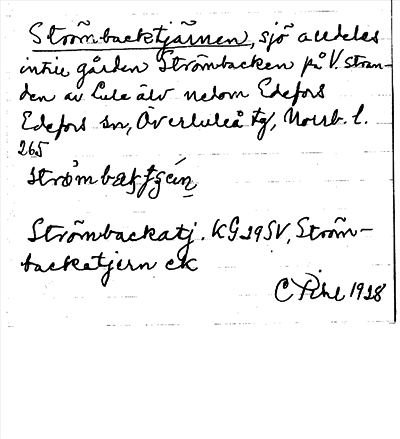 Strömbacktjärnen, sjö alldeles
intill gården Strömbacken på V. stran-
den av Lule älv nedom Edefors
Edefors sn, Överluleå tg, Norrb. l.
265
Strömbackatj. KG 29 SV, Ström-
backatjern ek
C Pihl 1928